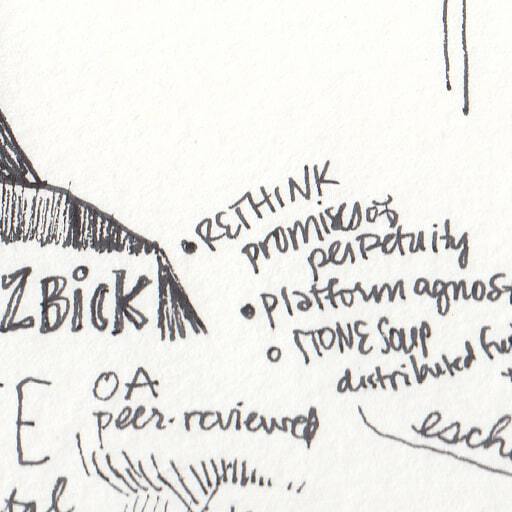 • RETHINK
promises of
perpetuity
• platform agnost
○ STONE SOUP
distributed
ZBICK
OA
peer-reviewed
TE
esch
tal